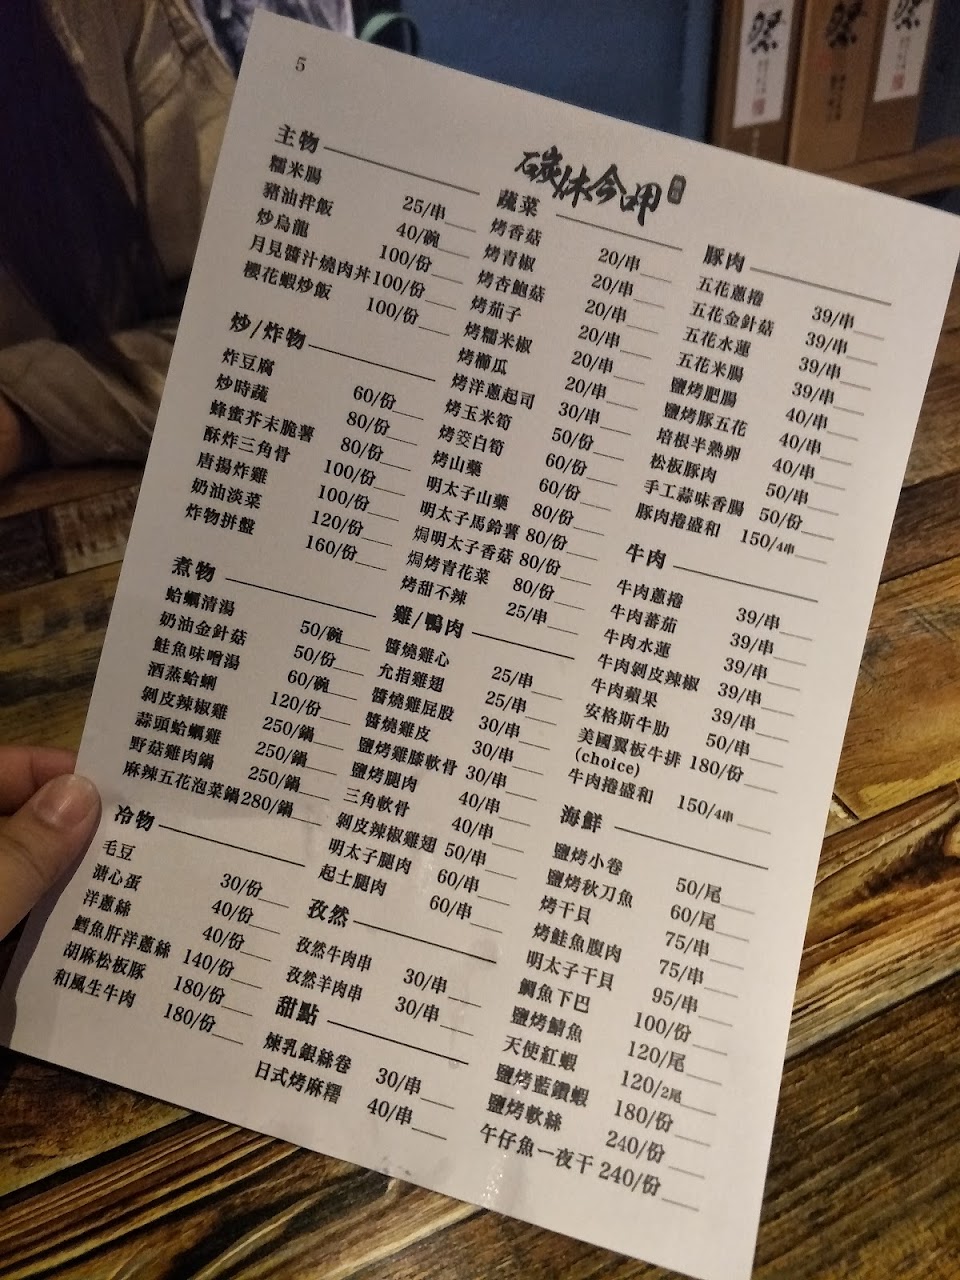 5
碳烤今呷
主物
糯米腸 25/串
豬油拌飯 40/碗
炒烏龍 100/份
月見醬汁燒肉丼 100/份
櫻花蝦炒飯 100/份
炒/炸物
炸豆腐 60/份
炒時蔬 80/份
蜂蜜芥末脆薯 80/份
酥炸三角骨 100/份
唐揚炸雞 100/份
奶油淡菜 120/份
炸物拼盤 160/份
煮物
蛤蠣清湯 50/碗
奶油金針菇 50/份
鮭魚味噌湯 60/碗
酒蒸蛤蜊 120/份
剝皮辣椒雞 250/鍋
蒜頭蛤蠣雞 250/鍋
野菇雞肉鍋 250/鍋
麻辣五花泡菜鍋 280/鍋
冷物
毛豆 30/份
溏心蛋 40/份
洋蔥絲 40/份
鱈魚肝洋蔥絲 140/份
胡麻松板豚 180/份
和風生牛肉 180/份
蔬菜
烤香菇 20/串
烤青椒 20/串
烤杏鮑菇 20/串
烤茄子 20/串
烤糯米椒 20/串
烤櫛瓜 20/串
烤洋蔥起司 30/串
烤玉米筍 50/份
烤筊白筍 60/份
烤山藥 60/份
明太子山藥 80/份
明太子馬鈴薯 80/份
焗明太子香菇 80/份
焗烤青花菜 80/份
烤甜不辣 25/串
雞/鴨肉
醬燒雞心 25/串
允指雞翅 25/串
醬燒雞屁股 30/串
醬燒雞皮 30/串
鹽烤雞膝軟骨 30/串
鹽烤腿肉 40/串
三角軟骨 40/串
剝皮辣椒雞翅 50/串
明太子腿肉 60/串
起士腿肉 60/串
孜然
孜然牛肉串 30/串
孜然羊肉串 30/串
甜點
煉乳銀絲卷 30/串
日式烤麻糬 40/串
豚肉
五花蔥捲 39/串
五花金針菇 39/串
五花水蓮 39/串
五花米腸 39/串
鹽烤肥腸 40/串
鹽烤豚五花 40/串
培根半熟卵 40/串
松板豚肉 50/串
手工蒜味香腸 50/份
豚肉捲盛和 150/4串
牛肉
牛肉蔥捲 39/串
牛肉蕃茄 39/串
牛肉水蓮 39/串
牛肉剝皮辣椒 39/串
牛肉蘋果 39/串
安格斯牛肋 50/串
美國翼板牛排 180/份
(choice)
牛肉捲盛和 150/4串
海鮮
鹽烤小卷 50/尾
鹽烤秋刀魚 60/尾
烤干貝 75/串
烤鮭魚腹肉 75/串
明太子干貝 95/串
鯛魚下巴 100/份
鹽烤鯖魚 120/尾
天使紅蝦 120/2尾
鹽烤藍鑽蝦 180/份
鹽烤軟絲 240/份
午仔魚一夜干 240/份